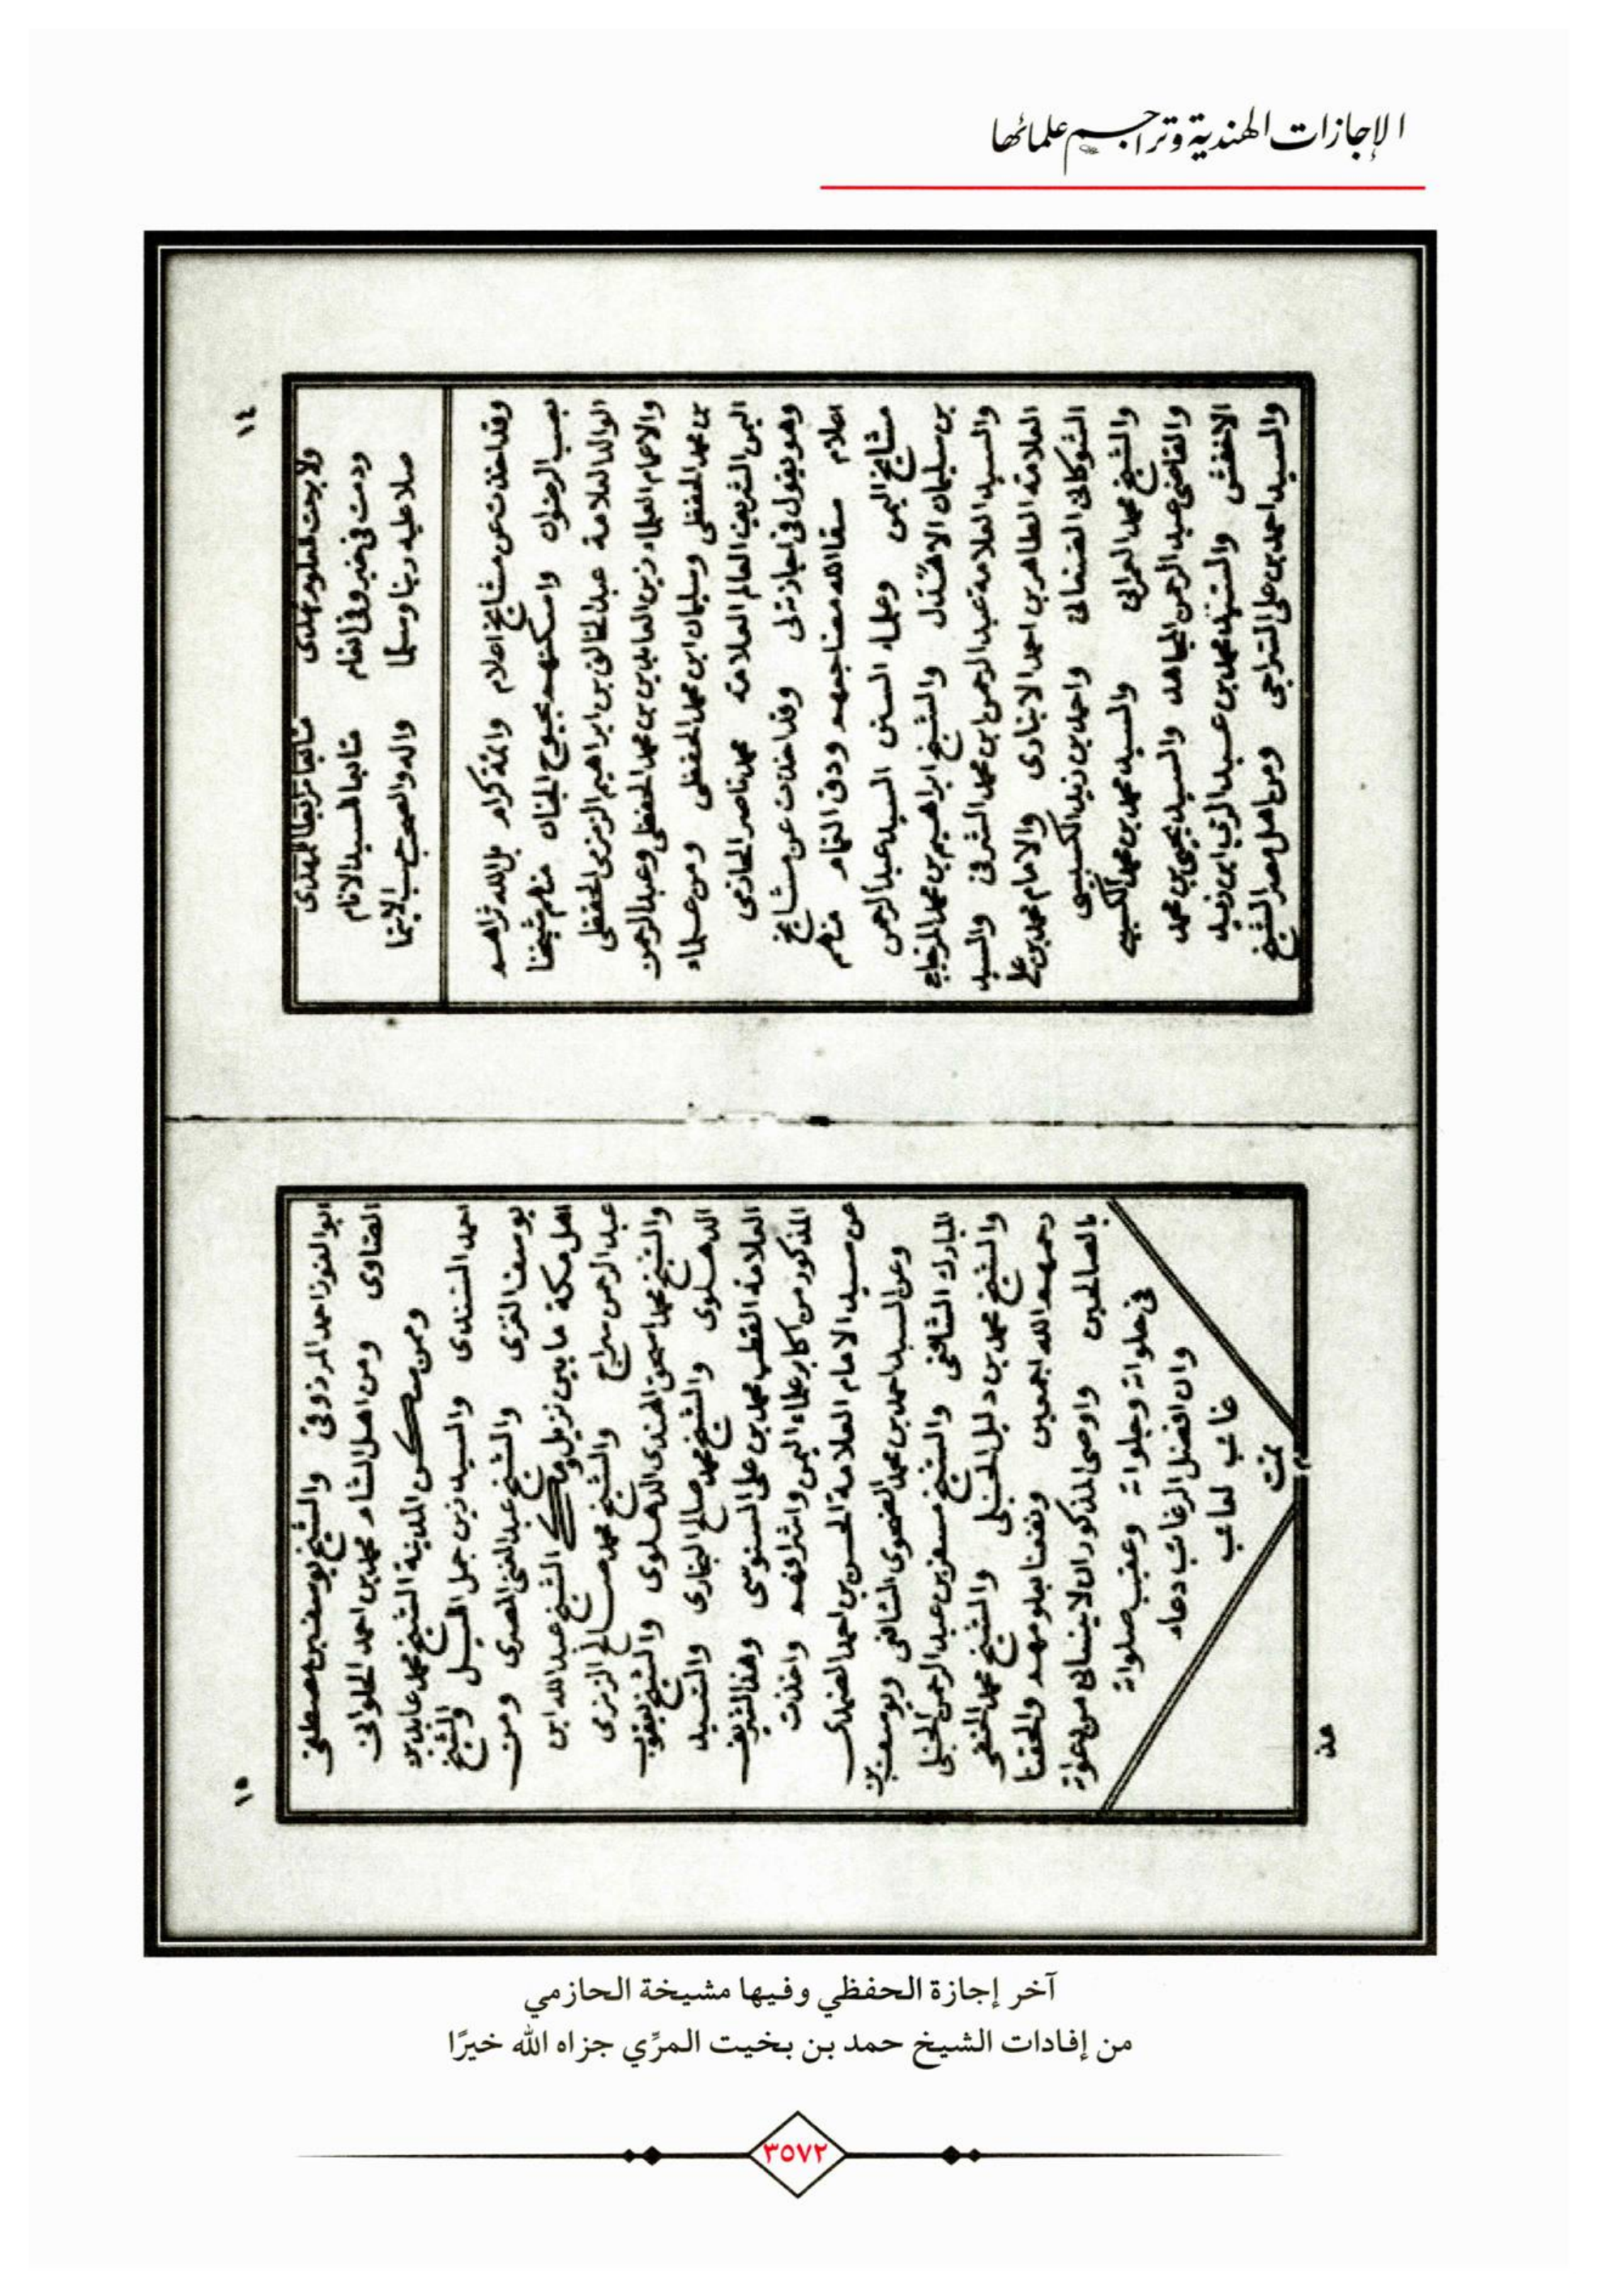 الإجازات الهندية وتراجم علمائها
١٤
ولا برحت لعلوم تهدى
ودمت في خير وفي انعام
صلا عليه ربنا وسلما
واله والصحب
وقد اخذت عن مشايخ اعلام وائمة كرام بل الله ثراهم
بصب الرضوان واسكنهم بحبوح الجنان منهم شيخنا
الوالد العلامة عبد الخالق بن ابراهيم الزمزمي الحفظي
والاعمام العلماء زين العابدين بن محمد الحفظي وعبد الرحمن
بن محمد الحفظي وسليمان ابن محمد الحفظي ومن علماء
اليمن الشريف العالم العلامة محمد ناصر الحازمي
وهو يقول في اجازته لى وقد اخذت عن مشايخ
اعلام سقا الله مضاجعهم ودق الغمام منهم
مشايخ اليمن وعلماء السنن السيد عبد الرحمن
بن سليمان الاهدل والشيخ ابراهيم بن محمد المزجاجي
والسيد العلامة عبد الرحمن ابن محمد الشرفي والسيد
العلامة الطاهر بن احمد الانباري والامام محمد بن علي
الشوكاني الصنعاني واحمد بن زيد الكبسي
والشيخ محمد العمراني والسيد محمد بن محمد الكبسي
والقاضي عبد الرحمن المجاهد والسيد يحيى بن محمد
الاخفش والسيد محمد بن عبد الرب ابن زيد
والسيد احمد بن علي السراجي ومن اهل مصر الشيخ
١٥
ابو الفوز احمد المرزوقي والشيخ يوسف بن مصطفى
الصاوي ومن اهل الشام محمد بن احمد الحلواني
وممن سكن المدينة الشيخ محمد عابد بن
احمد السندي والسيد زين جمل الليل والشيخ
يوسف الغزي والشيخ عبد الغني المصري ومن
اهل مكة ما بين نزيل و الشيخ عبد الله ابن
عبد الرحمن سراج والشيخ محمد صالح الزمزمي
والشيخ محمد اسحق الهندي الدهلوي والشيخ يعقوب
الدهلوي والشيخ محمد صالح البخاري والسيد
العلامة القطب محمد بن علي السنوسي وهذا الشريف
المذكور من اكابر علماء اليمن واشرافهم واخذت
عن سيد الامام العلامة الحسن بن احمد الضمدي
وعن السيد احمد بن محمد الضحوي الشافعي ويوسف بن
المبارك الشافعي والشيخ مسفر بن عبد الرحمن الحنبلي
والشيخ محمد بن دليل الحنبلي والشيخ محمد الحنفي
رحمهم الله اجمعين ونفعنا بعلومهم والحقنا
بالصالحين واوصى المذكور ان لا ينساني من دعواته
في خلواته وجلواته وعقب صلواته
وان افضل الرغائب دعاء
غائب لغائب
تمت
آخر إجازة الحفظي وفيها مشيخة الحازمي
من إفادات الشيخ حمد بن بخيت المرِّي جزاه الله خيرًا
٣٥٧٢